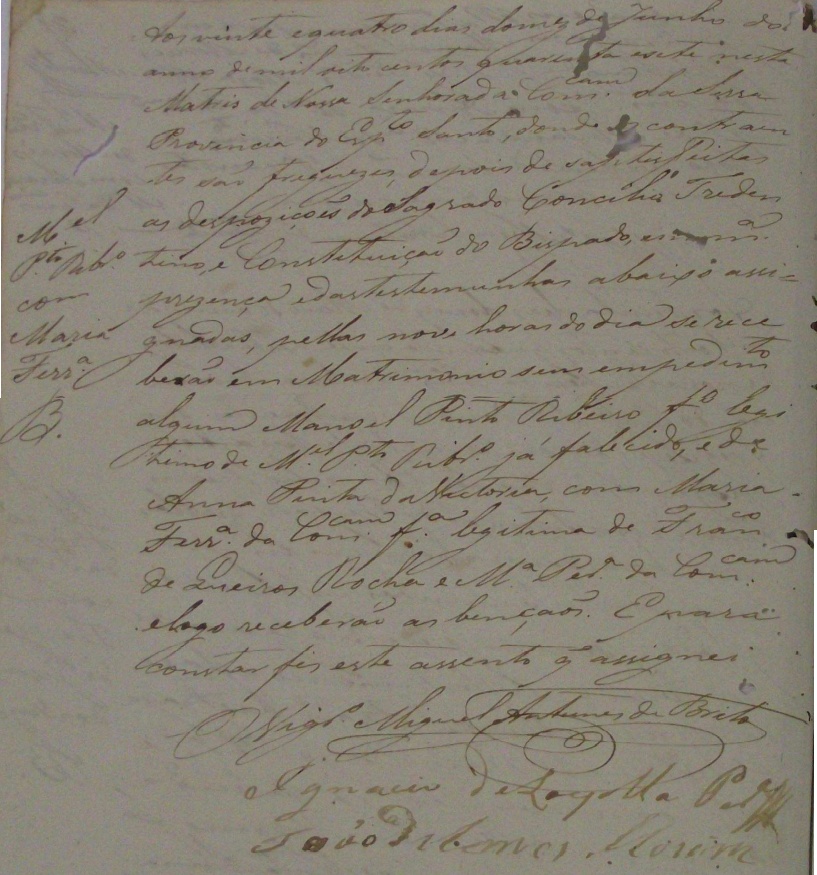 Aos vinte equatro dias domez de Junho do
anno de mil oito centos quarenta esete nesta
Matris de Nossa Senhora da Comcam. da Serra
Provincia do Espto. Santo, donde os contraen
tes são freguezes, depois de satisfeitas
as despoziçoēs do Sagrado Concilio Treden
tino, e Constituição do Bispado, em
prezença edastestemunhas abaixo assi=
gnadas, pellas nove horas do dia se rece
berão em Matrimonio sem empedimto
algum Manoel Pinto Ribeiro fo. legi
timo de Mel. Pto. Ribro. já falecido, e de
Anna Pinta da Victoria, com Maria
Ferra. da Comcam. fa. legitima de Franco
de Queiros Rocha e Ma. Per. da Comcam.
elogo receberão as bençaoš. E para
constar fis este assento q̃ assignei
O Vigro. Miguel Antunes de Brito
Ignacio de Loyolla
João
Mel
Pto. Ribo.
com
Maria
Ferra.
B.